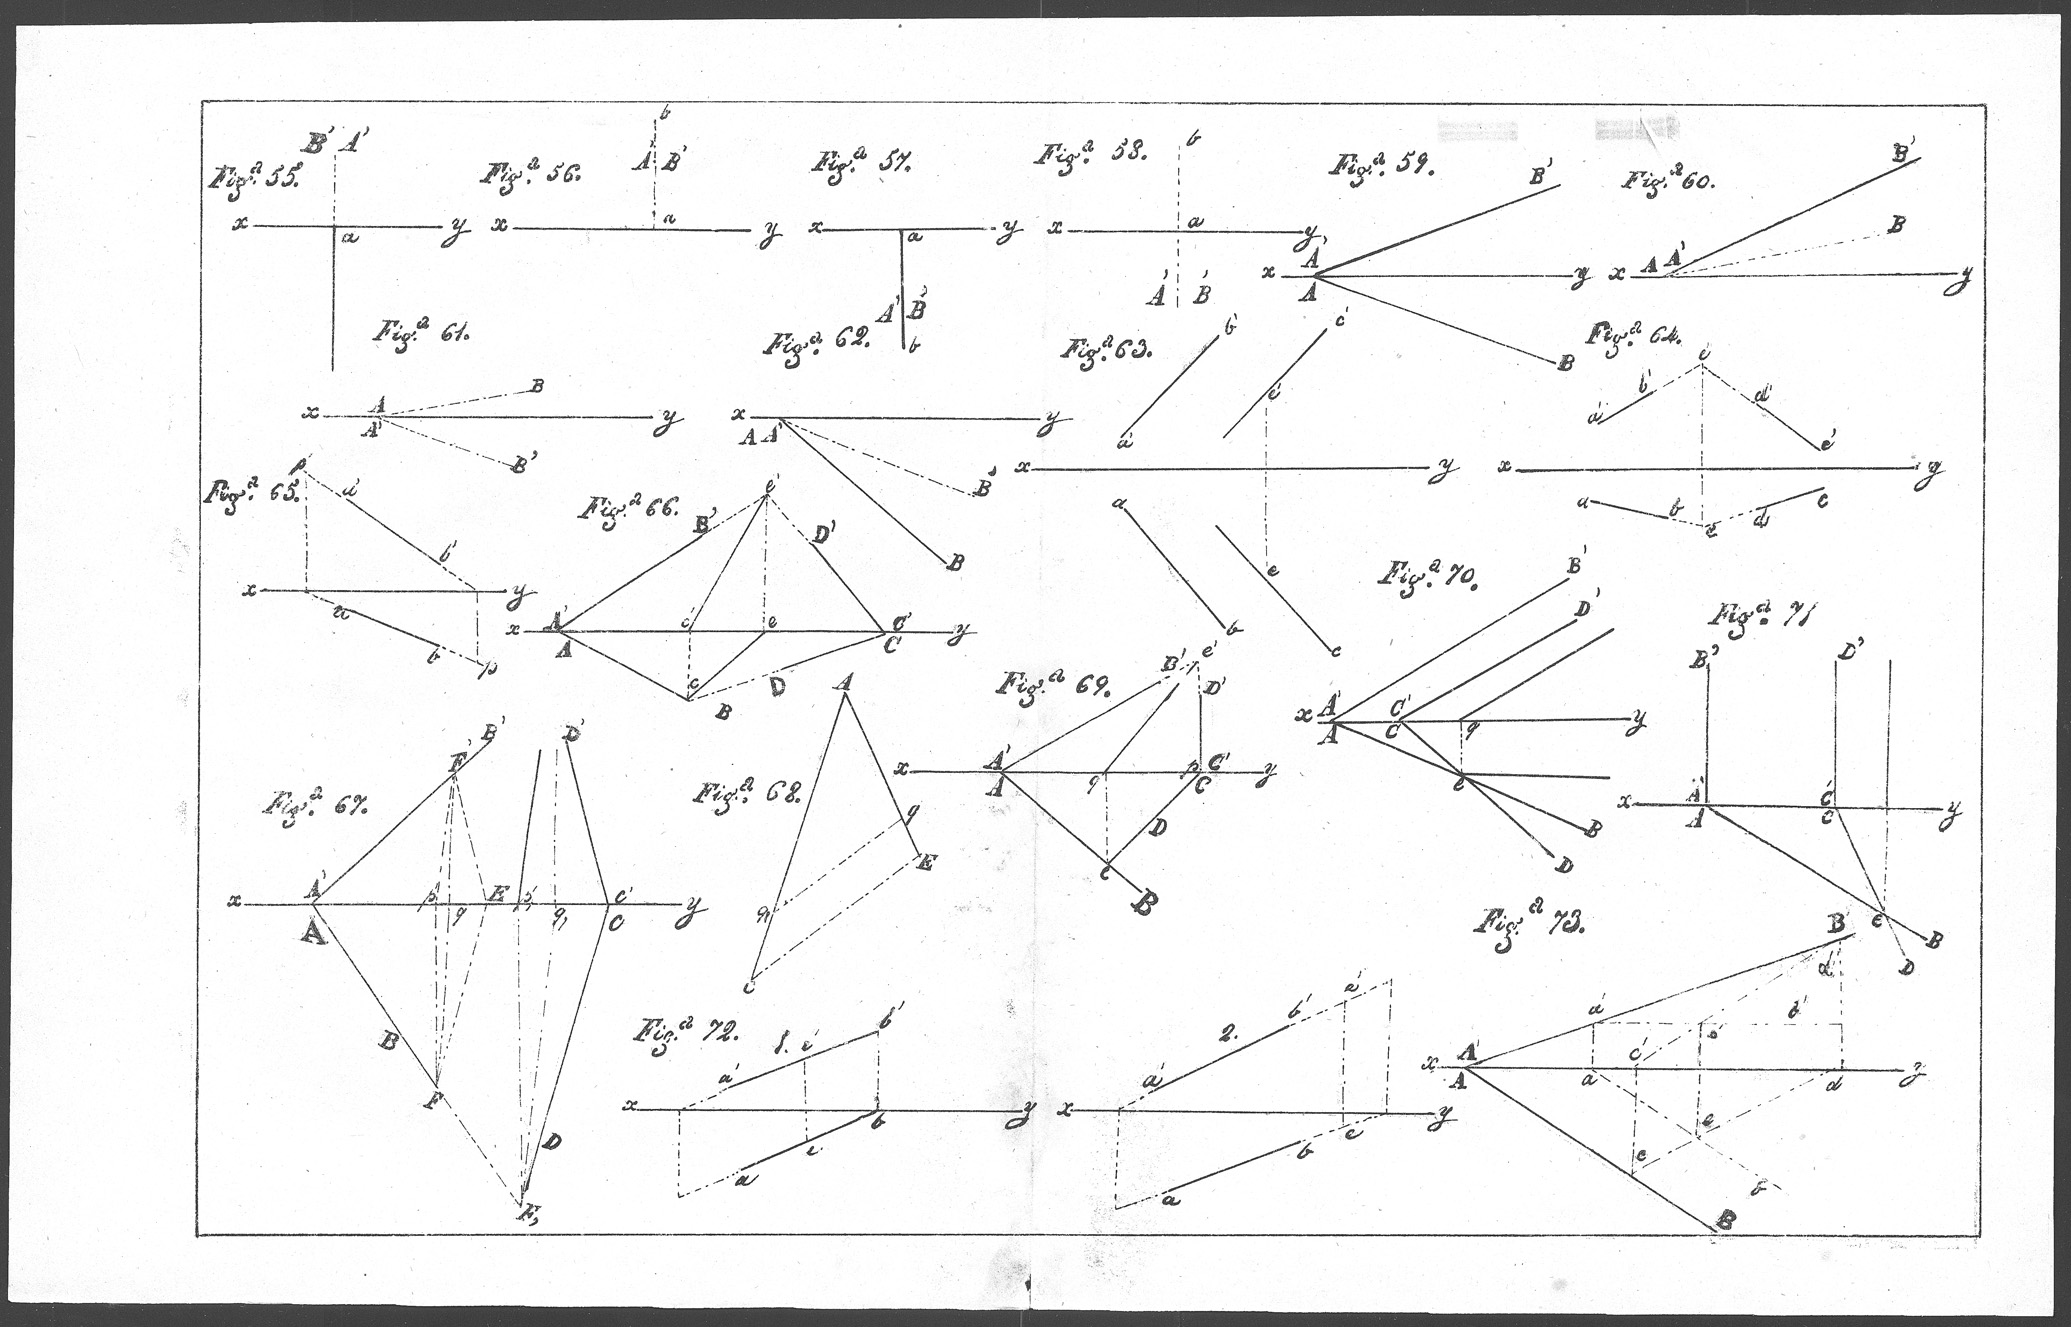 Fig.ª 55.
B' A'
x a y
Fig.ª 56.
b
A' B'
x a y
Fig.ª 57.
x a y
A' B'
b
Fig.ª 58.
b
x a y
A' B'
Fig.ª 59.
B'
A'
x y
A
B
Fig.ª 60.
B'
B
x A A' y
Fig.ª 61.
B
A
x y
A'
B'
Fig.ª 62.
x y
A A'
B'
B
Fig.ª 63.
b' c'
e'
a'
x y
a
e
b
c
Fig.ª 64.
b' d'
a' e'
x y
a b d c
e
Fig.ª 65.
p' a'
b'
x y
a
b p
Fig.ª 66.
e'
B' D'
A' c' e C'
x y
A C
c D
B
Fig.ª 67.
B' D'
F'
A' E C'
x y
A q q, C
B
F
D
F,
Fig.ª 68.
A
q
E
q,
c
Fig.ª 69.
B' e'
D'
A' C'
x q p y
A C
D
c
B
Fig.ª 70.
B'
D'
A' C'
x y
A C q
e
B
D
Fig.ª 71
B' D'
A' C'
x y
A C
e
B
D
Fig.ª 72.
1. b'
a'
x y
b
a
2. b'
a'
x y
b c
a
Fig.ª 73.
B'
d'
a' b'
A' c'
x y
A a d
e
c
b
B